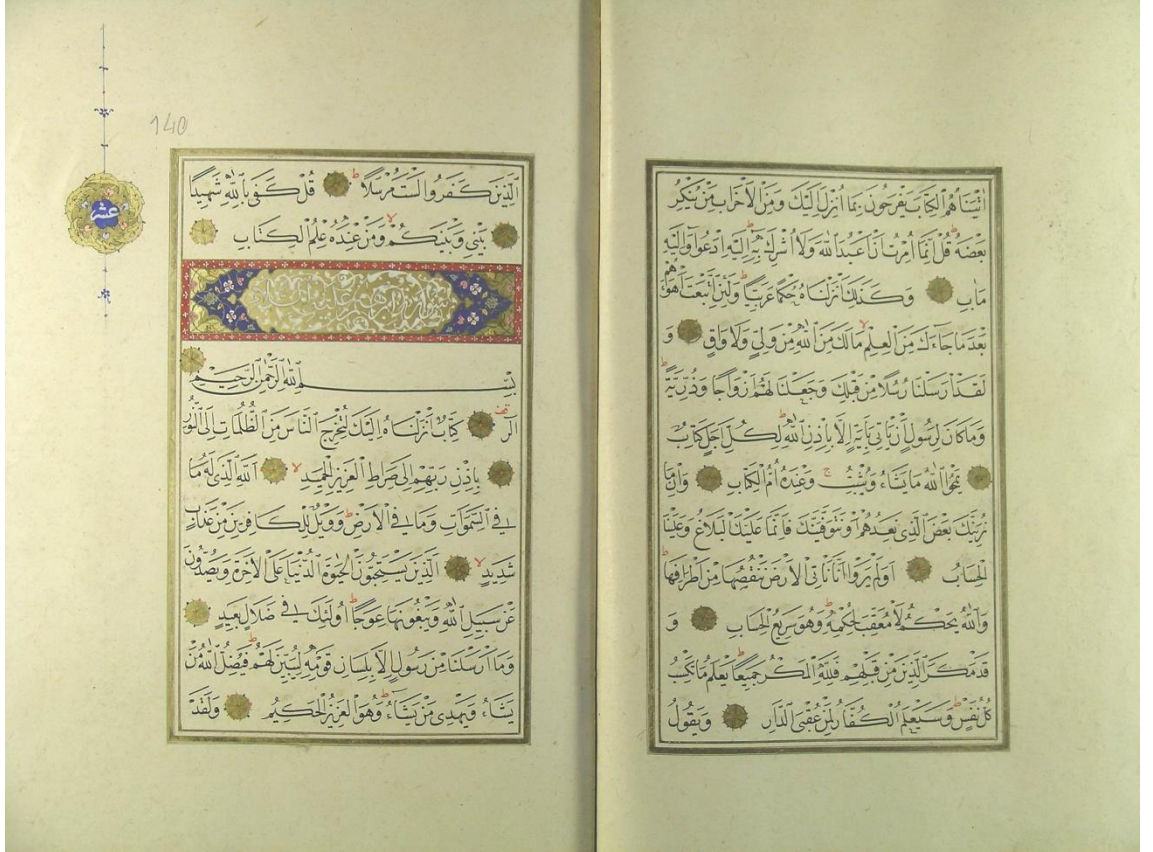 اٰتَيْنَاهُمُ الْكِتَابَ يَفْرَحُونَ بِمَا اُنْزِلَ اِلَيْكَ وَمِنَ الْاَحْزَابِ مَنْ يُنْكِرُ
بَعْضَهُ ط قُلْ اِنَّمَا اُمِرْتُ اَنْ اَعْبُدَ اللّٰهَ وَلَا اُشْرِكَ بِهِ ط اِلَيْهِ اَدْعُوا وَاِلَيْهِ
مَاٰبِ وَكَذٰلِكَ اَنْزَلْنَاهُ حُكْمًا عَرَبِيًّا ط وَلَئِنِ اتَّبَعْتَ اَهْوَاءَهُمْ
بَعْدَ مَا جَاءَكَ مِنَ الْعِلْمِ لا مَا لَكَ مِنَ اللّٰهِ مِنْ وَلِيٍّ وَلَا وَاقٍ وَ
لَقَدْ اَرْسَلْنَا رُسُلًا مِنْ قَبْلِكَ وَجَعَلْنَا لَهُمْ اَزْوَاجًا وَذُرِّيَّةً ط
وَمَا كَانَ لِرَسُولٍ اَنْ يَاْتِيَ بِاٰيَةٍ اِلَّا بِاِذْنِ اللّٰهِ ط لِكُلِّ اَجَلٍ كِتَابٌ
يَمْحُوا اللّٰهُ مَا يَشَاءُ وَيُثْبِتُ ج وَعِنْدَهُ اُمُّ الْكِتَابِ وَاِنْ مَا
نُرِيَنَّكَ بَعْضَ الَّذِي نَعِدُهُمْ اَوْ نَتَوَفَّيَنَّكَ فَاِنَّمَا عَلَيْكَ الْبَلَاغُ وَعَلَيْنَا
الْحِسَابُ اَوَلَمْ يَرَوْا اَنَّا نَاْتِي الْاَرْضَ نَنْقُصُهَا مِنْ اَطْرَافِهَا ط
وَاللّٰهُ يَحْكُمُ لَا مُعَقِّبَ لِحُكْمِهِ ط وَهُوَ سَرِيعُ الْحِسَابِ وَ
قَدْ مَكَرَ الَّذِينَ مِنْ قَبْلِهِمْ فَلِلّٰهِ الْمَكْرُ جَمِيعًا ط يَعْلَمُ مَا تَكْسِبُ
كُلُّ نَفْسٍ ط وَسَيَعْلَمُ الْكُفَّارُ لِمَنْ عُقْبَى الدَّارِ وَيَقُولُ
140
عشر
الَّذِينَ كَفَرُوا لَسْتَ مُرْسَلًا ط قُلْ كَفٰى بِاللّٰهِ شَهِيدًا
بَيْنِي وَبَيْنَكُمْ لا وَمَنْ عِنْدَهُ عِلْمُ الْكِتَابِ
بِسْمِ اللّٰهِ الرَّحْمٰنِ الرَّحِيمِ
الٓرٰ قف كِتَابٌ اَنْزَلْنَاهُ اِلَيْكَ لِتُخْرِجَ النَّاسَ مِنَ الظُّلُمَاتِ اِلَى النُّورِ
بِاِذْنِ رَبِّهِمْ اِلٰى صِرَاطِ الْعَزِيزِ الْحَمِيدِ لا اَللّٰهِ الَّذِي لَهُ مَا
فِي السَّمٰوَاتِ وَمَا فِي الْاَرْضِ ط وَوَيْلٌ لِلْكَافِرِينَ مِنْ عَذَابٍ
شَدِيدٍ لا الَّذِينَ يَسْتَحِبُّونَ الْحَيٰوةَ الدُّنْيَا عَلَى الْاٰخِرَةِ وَيَصُدُّونَ
عَنْ سَبِيلِ اللّٰهِ وَيَبْغُونَهَا عِوَجًا ط اُولٰئِكَ فِي ضَلَالٍ بَعِيدٍ
وَمَا اَرْسَلْنَا مِنْ رَسُولٍ اِلَّا بِلِسَانِ قَوْمِهِ لِيُبَيِّنَ لَهُمْ ط فَيُضِلُّ اللّٰهُ مَنْ
يَشَاءُ وَيَهْدِي مَنْ يَشَاءُ ط وَهُوَ الْعَزِيزُ الْحَكِيمُ وَلَقَدْ